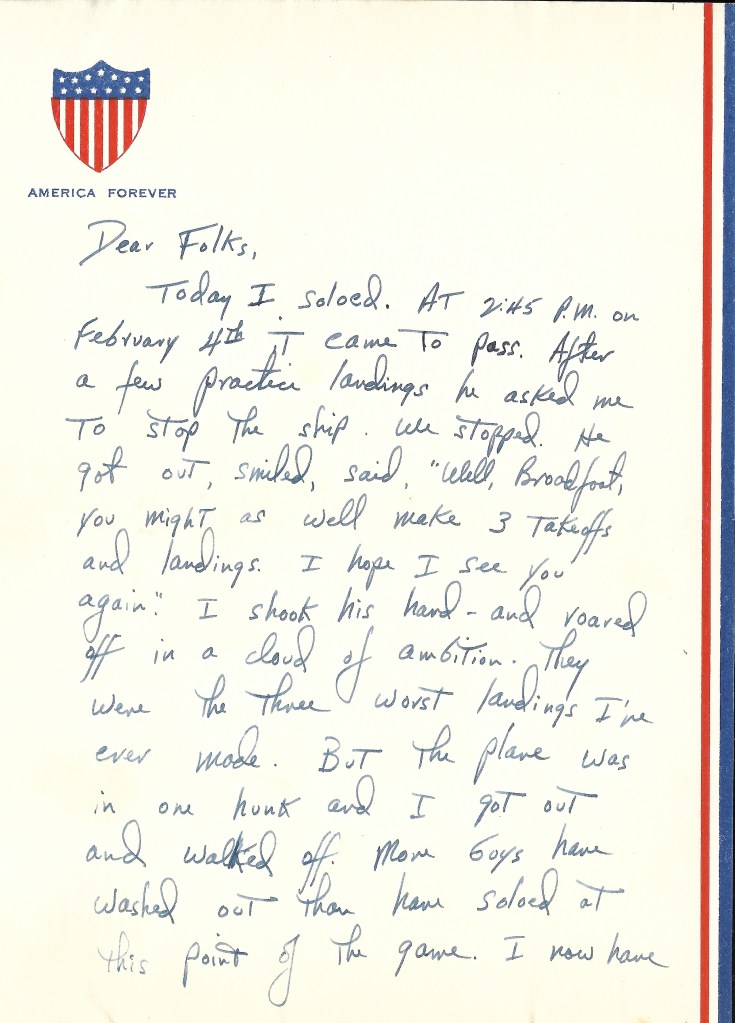 AMERICA FOREVER
Dear Folks,
Today I soloed. AT 2:45 P.M. on
February 4th iT came To pass. After
a few practice landings he asked me
To stop the ship. We stopped. He
got out, smiled, said, "Well, Broadfoot,
you might as well make 3 Takeoffs
and landings. I hope I see you
again." I shook his hand - and roared
off in a cloud of ambition. They
were the three worst landings I've
ever made. But the plane was
in one hunk and I got out
and walked off. More Guys have
washed out than have soloed at
this point of the game. I now have